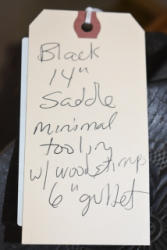 Black
14"
Saddle
minimal
toolin
w/ wood stirrups
6" gullet